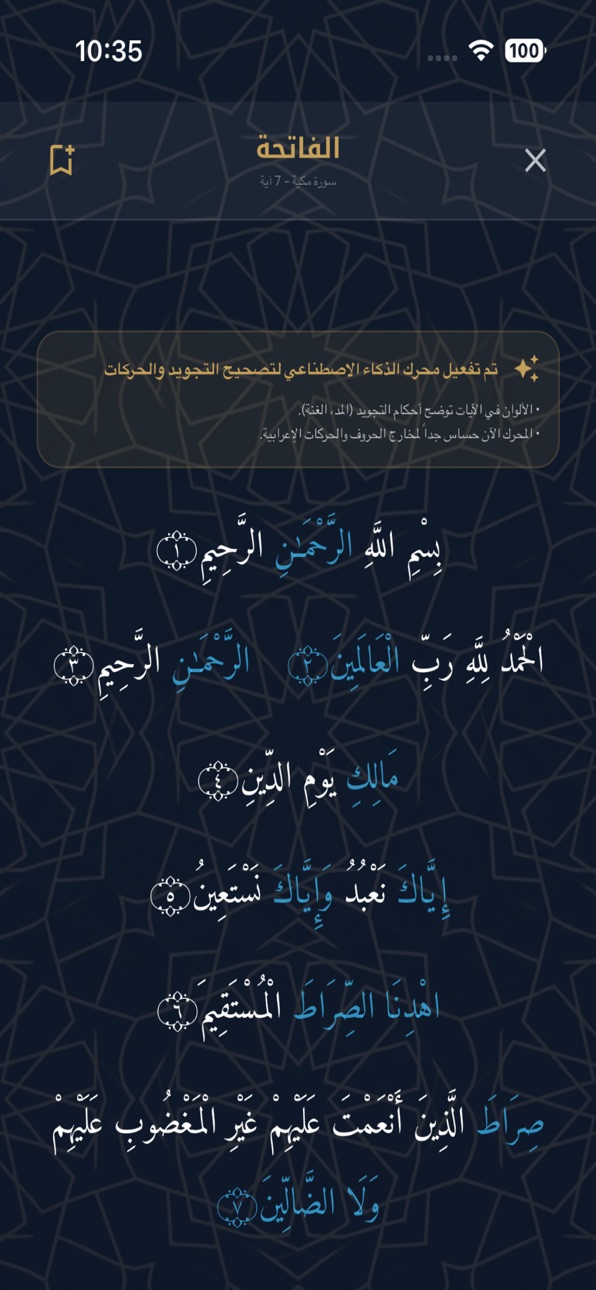 10:35
100
الفاتحة
سورة مكية - 7 آية
تم تفعيل محرك الذكاء الاصطناعي لتصحيح التجويد والحركات
• الألوان في الآيات توضح أحكام التجويد (المد، الغنة).
• المحرك الآن حساس جداً لمخارج الحروف والحركات الإعرابية.
بِسْمِ اللَّهِ الرَّحْمَـٰنِ الرَّحِيمِ ١
الْحَمْدُ لِلَّهِ رَبِّ الْعَالَمِينَ ٢ الرَّحْمَـٰنِ الرَّحِيمِ ٣
مَالِكِ يَوْمِ الدِّينِ ٤
إِيَّاكَ نَعْبُدُ وَإِيَّاكَ نَسْتَعِينُ ٥
اهْدِنَا الصِّرَاطَ الْمُسْتَقِيمَ ٦
صِرَاطَ الَّذِينَ أَنْعَمْتَ عَلَيْهِمْ غَيْرِ الْمَغْضُوبِ عَلَيْهِمْ
وَلَا الضَّالِّينَ ٧